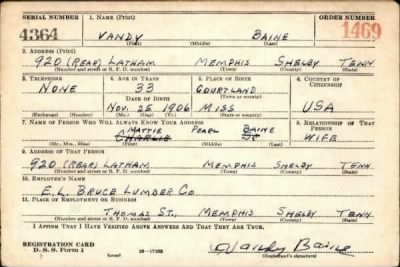 SERIAL NUMBER 1. NAME (Print) ORDER NUMBER
4364 VANDY BAINE 1469
(First) (Middle) (Last)
2. ADDRESS (Print)
920 (REAR) LATHAM MEMPHIS SHELBY TENN.
(Number and street or R. F. D. number) (Town) (County) (State)
3. TELEPHONE 4. AGE IN YEARS 5. PLACE OF BIRTH 6. COUNTRY OF CITIZENSHIP
NONE 33 COURTLAND
DATE OF BIRTH (Town or county)
NOV. 25 1906 MISS USA
(Mo.) (Day) (Yr.) (State or country)
7. NAME OF PERSON WHO WILL ALWAYS KNOW YOUR ADDRESS 8. RELATIONSHIP OF THAT PERSON
MATTIE PEARL BAINE
CHARLIE WIFE
(Mr., Mrs., Miss) (First) (Middle) (Last)
9. ADDRESS OF THAT PERSON
920 (REAR) LATHAM MEMPHIS SHELBY TENN.
(Number and street or R. F. D. number) (Town) (County) (State)
10. EMPLOYER'S NAME
E.L. BRUCE LUMBER CO.
11. PLACE OF EMPLOYMENT OR BUSINESS
THOMAS ST., MEMPHIS SHELBY TENN.
(Number and street or R. F. D. number) (Town) (County) (State)
I AFFIRM THAT I HAVE VERIFIED ABOVE ANSWERS AND THAT THEY ARE TRUE.
REGISTRATION CARD
D. S. S. Form 1 (over) 16—17105 Vandy Baine
(Registrant's signature)